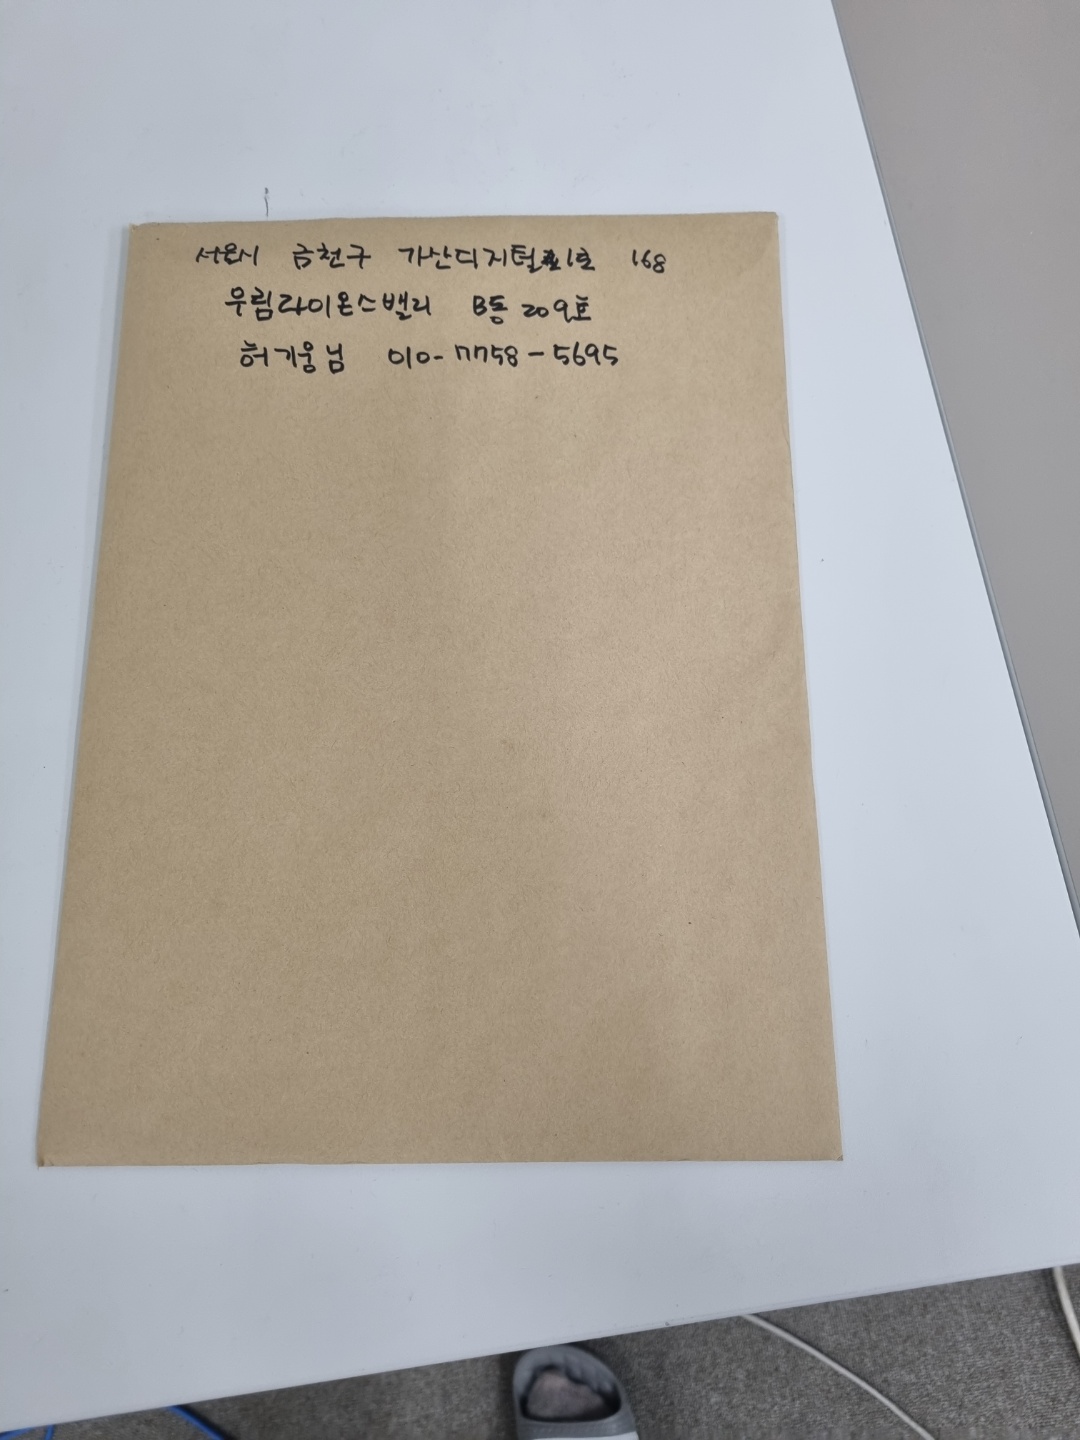 서울시 금천구 가산디지털1로 168
우림라이온스밸리 B동 209호
허기웅님 010-7758-5695